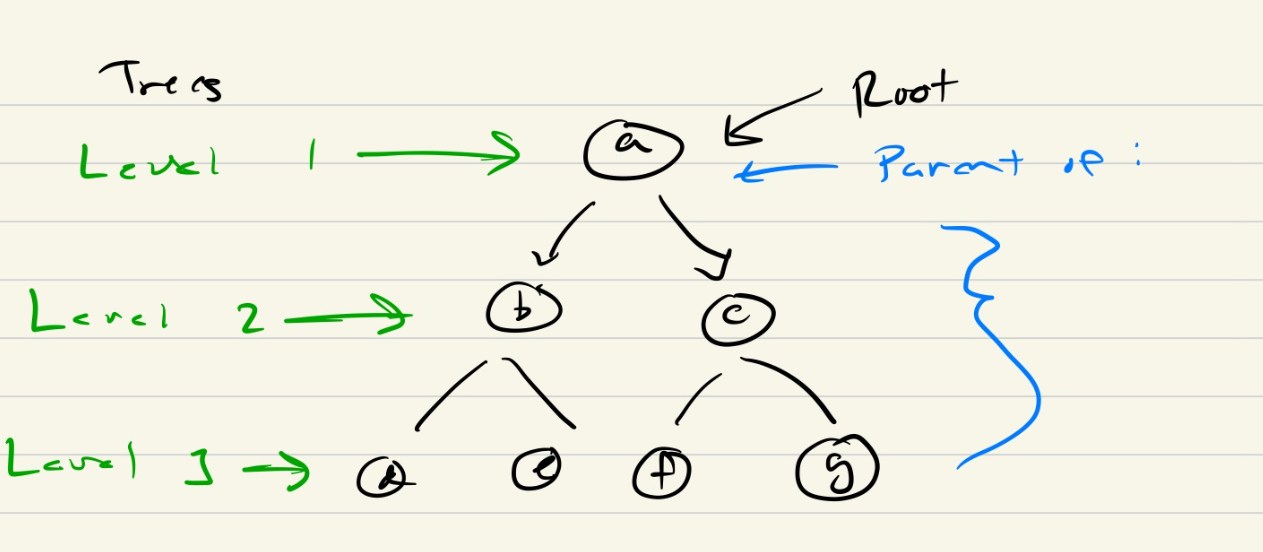 Trees
Root
Level 1 → a
← Parent of :
Level 2 → b c
Level 3 → d e f g